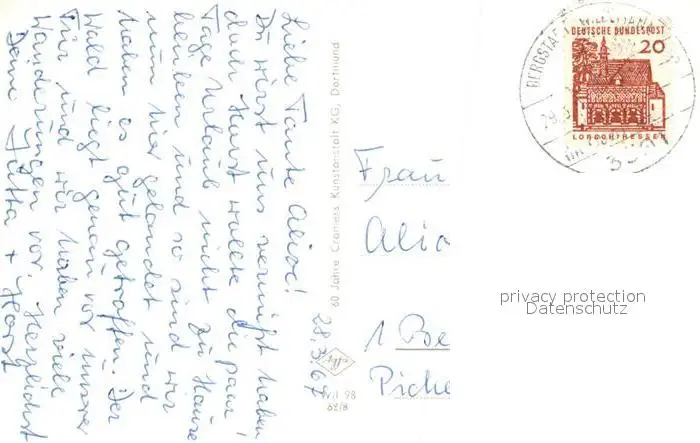 Liebe Tante Alice!
28.3.67
Du wirst uns vermißt haben,
doch Horst wollte die paar
Tage Urlaub nicht zu Hause
bleiben und so sind wir
nun hier gelandet und
haben es gut getroffen. Der
Wald liegt genau vor unserer
Tür und wir haben viele
Wanderungen vor. Herzlichst
Deine Jutta + Horst
60 Jahre Cramers Kunstanstalt KG, Dortmund
Wil 98
62/8
Frau
Alic
1 Be
Piche
BERGSTADT WILDEMANN
29.3
DEUTSCHE BUNDESPOST
20
LORSCH/HESSEN
privacy protection
Datenschutz